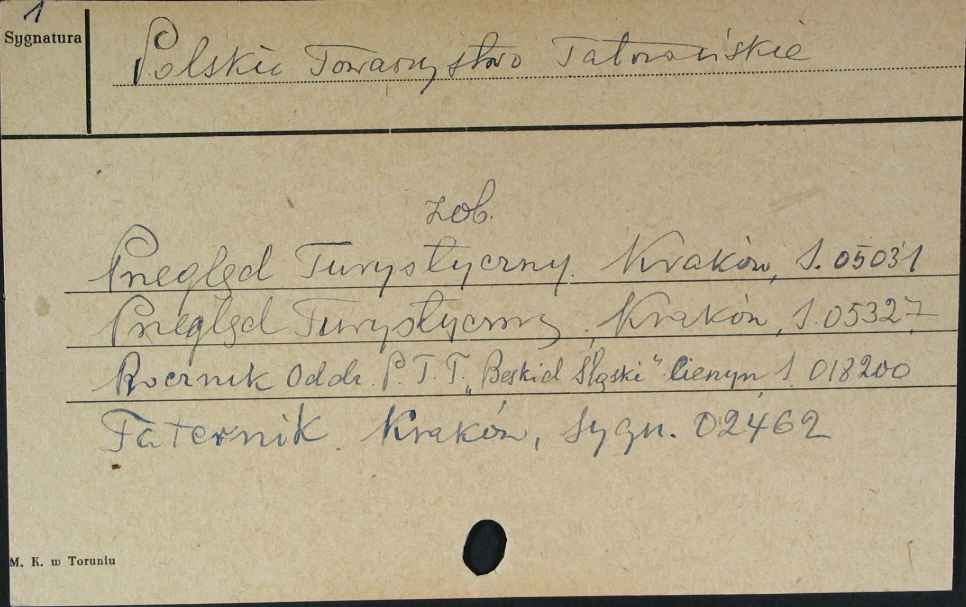 1
Sygnatura
Polskie Towarzystwo Tatrzańskie
zob.
Przegląd Turystyczny. Kraków, S. 05031
Przegląd Turystyczny, Kraków, S. 05327
Rocznik Oddz. P. T. T. „Beskid Śląski" Cieszyn S. 018200
Taternik. Kraków, Sygn. 02462
M. K. w Toruniu